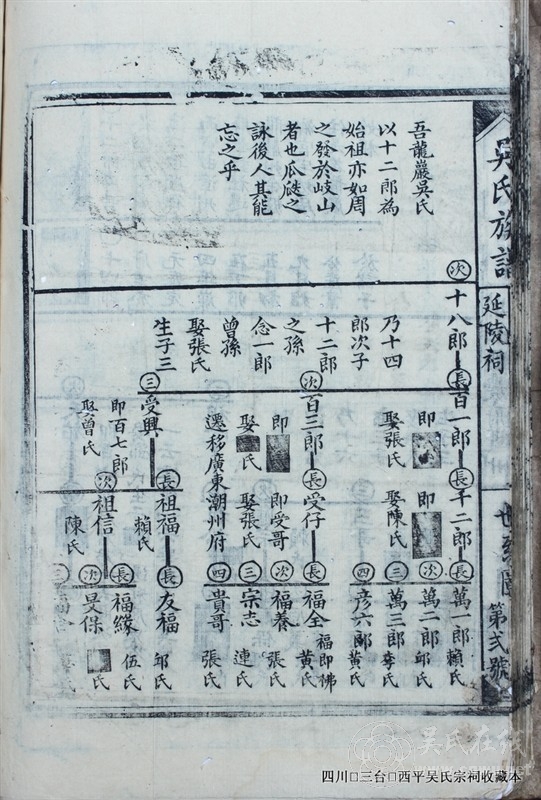 吳氏族譜
延陵祠
世系圖
第弍號
吾龍巖吳氏
以十二郎為
始祖亦如周
之發於岐山
者也瓜瓞之
詠後人其能
忘之乎
次
十八郎
乃十四
郎次子
十二郎
之孫
念一郎
曾孫
娶張氏
生子三
長
百一郎
即
娶張氏
次
百三郎
即
娶 氏
三
受興
即百七郎
娶曾氏
長
千二郎
即
娶陳氏
長
受仔
即受哥
娶張氏
遷移廣東潮州府
長
祖福
賴氏
次
祖信
陳氏
長
萬一郎
賴氏
次
萬二郎
邱氏
三
萬三郎
李氏
四
彦六郎
黃氏
長
福全
福即佛
黃氏
次
福養
張氏
三
宗志
連氏
四
貴哥
張氏
長
友福
邱氏
長
福緣
伍氏
次
旻保
氏
三
吴氏在线
四川□三台□西平吴氏宗祠收藏本